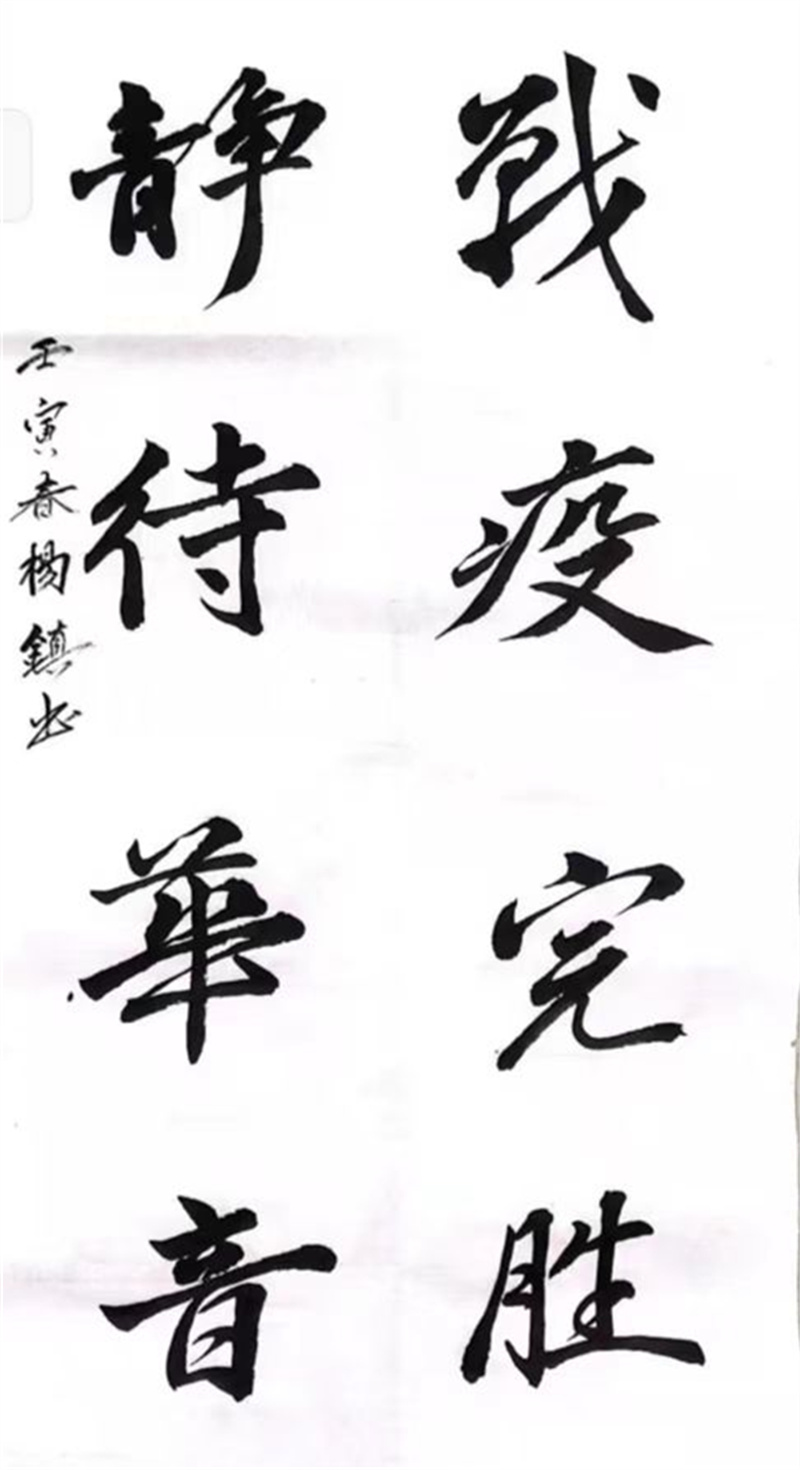 戰疫完胜
静待華音
壬寅春楊鎮书